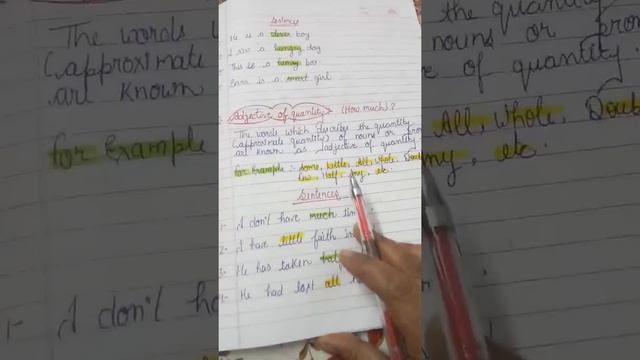 Sentences
He is a clever boy
I saw a hungry dog
This is a heavy box
Sara is a smart girl
Adjective of quantity (How much)?
The words which describe the quantity
(approximate quantity) of nouns or
are known as adjective of quantity
for Example :- Some, little, All, Whole,
Half, Any, etc.
Sentences
1- I don't have much
2- I have little faith in
3- He has taken
4- He had lost all